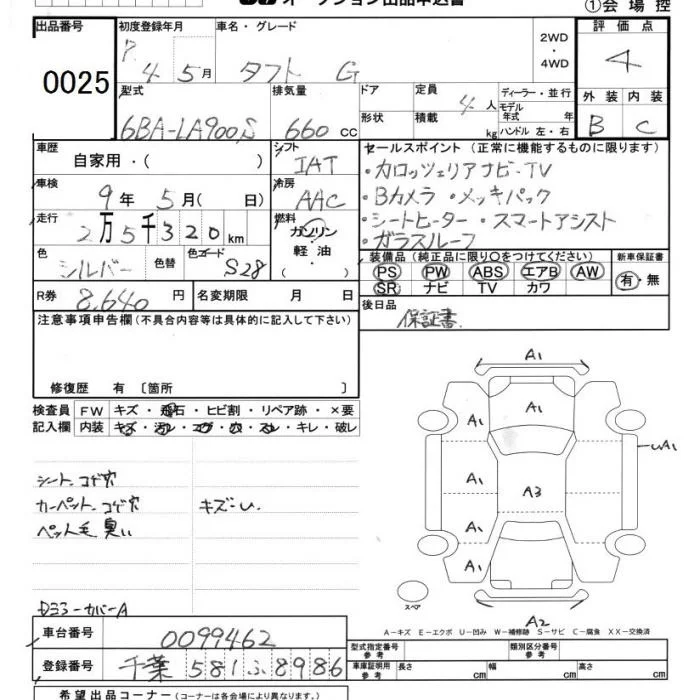 オークション出品申込書
①会場控
出品番号 0025
初度登録年月 4年 5月
車名・グレード タフト G
2WD・4WD
評価点 4
外装 B 内装 C
型式 6BA-LA900S
排気量 660 cc
ドア
形状
定員 4人
積載 kg
ディーラー・並行
モデル年式 年
ハンドル 左・右
車歴 自家用・( )
シフト IAT
車検 9年 5月( 日)
冷房 AAC
走行 2万5千320km
燃料 ガソリン 軽油 ( )
色 シルバー 色替 色コード S28
R券 8,640 円
名変期限 月 日
セールスポイント(正常に機能するものに限ります)
・カロッツェリアナビ・TV
・Bカメラ ・メッキパック
・シートヒーター ・スマートアシスト
・ガラスルーフ
装備品(純正品に限り○をつけてください)
PS PW ABS エアB AW
SR ナビ TV カワ
新車保証書
有・無
後日品 保証書
注意事項申告欄(不具合内容等は具体的に記入して下さい)
修復歴 有〔箇所 〕
検査員記入欄
FW キズ・飛石・ヒビ割・リペア跡・×要
内装 キズ・汚レ・コゲ・穴・スレ・キレ・破レ
シート コゲ穴
カーペット コゲ穴 キズ・U
ペット毛 臭い
A1
A1
A1 A1 UA1
A1 A3
A1
A1
A2
スペア
A－キズ E－エクボ U－凹み W－補修跡 S－サビ C－腐食 XX－交換済
車台番号 0099462
登録番号 千葉 581 ふ 8986
型式指定番号 参考
類別区分番号 参考
車庫証明用 参考 長さ cm 幅 cm 高さ cm
希望出品コーナー(コーナーは各会場により異なります。)